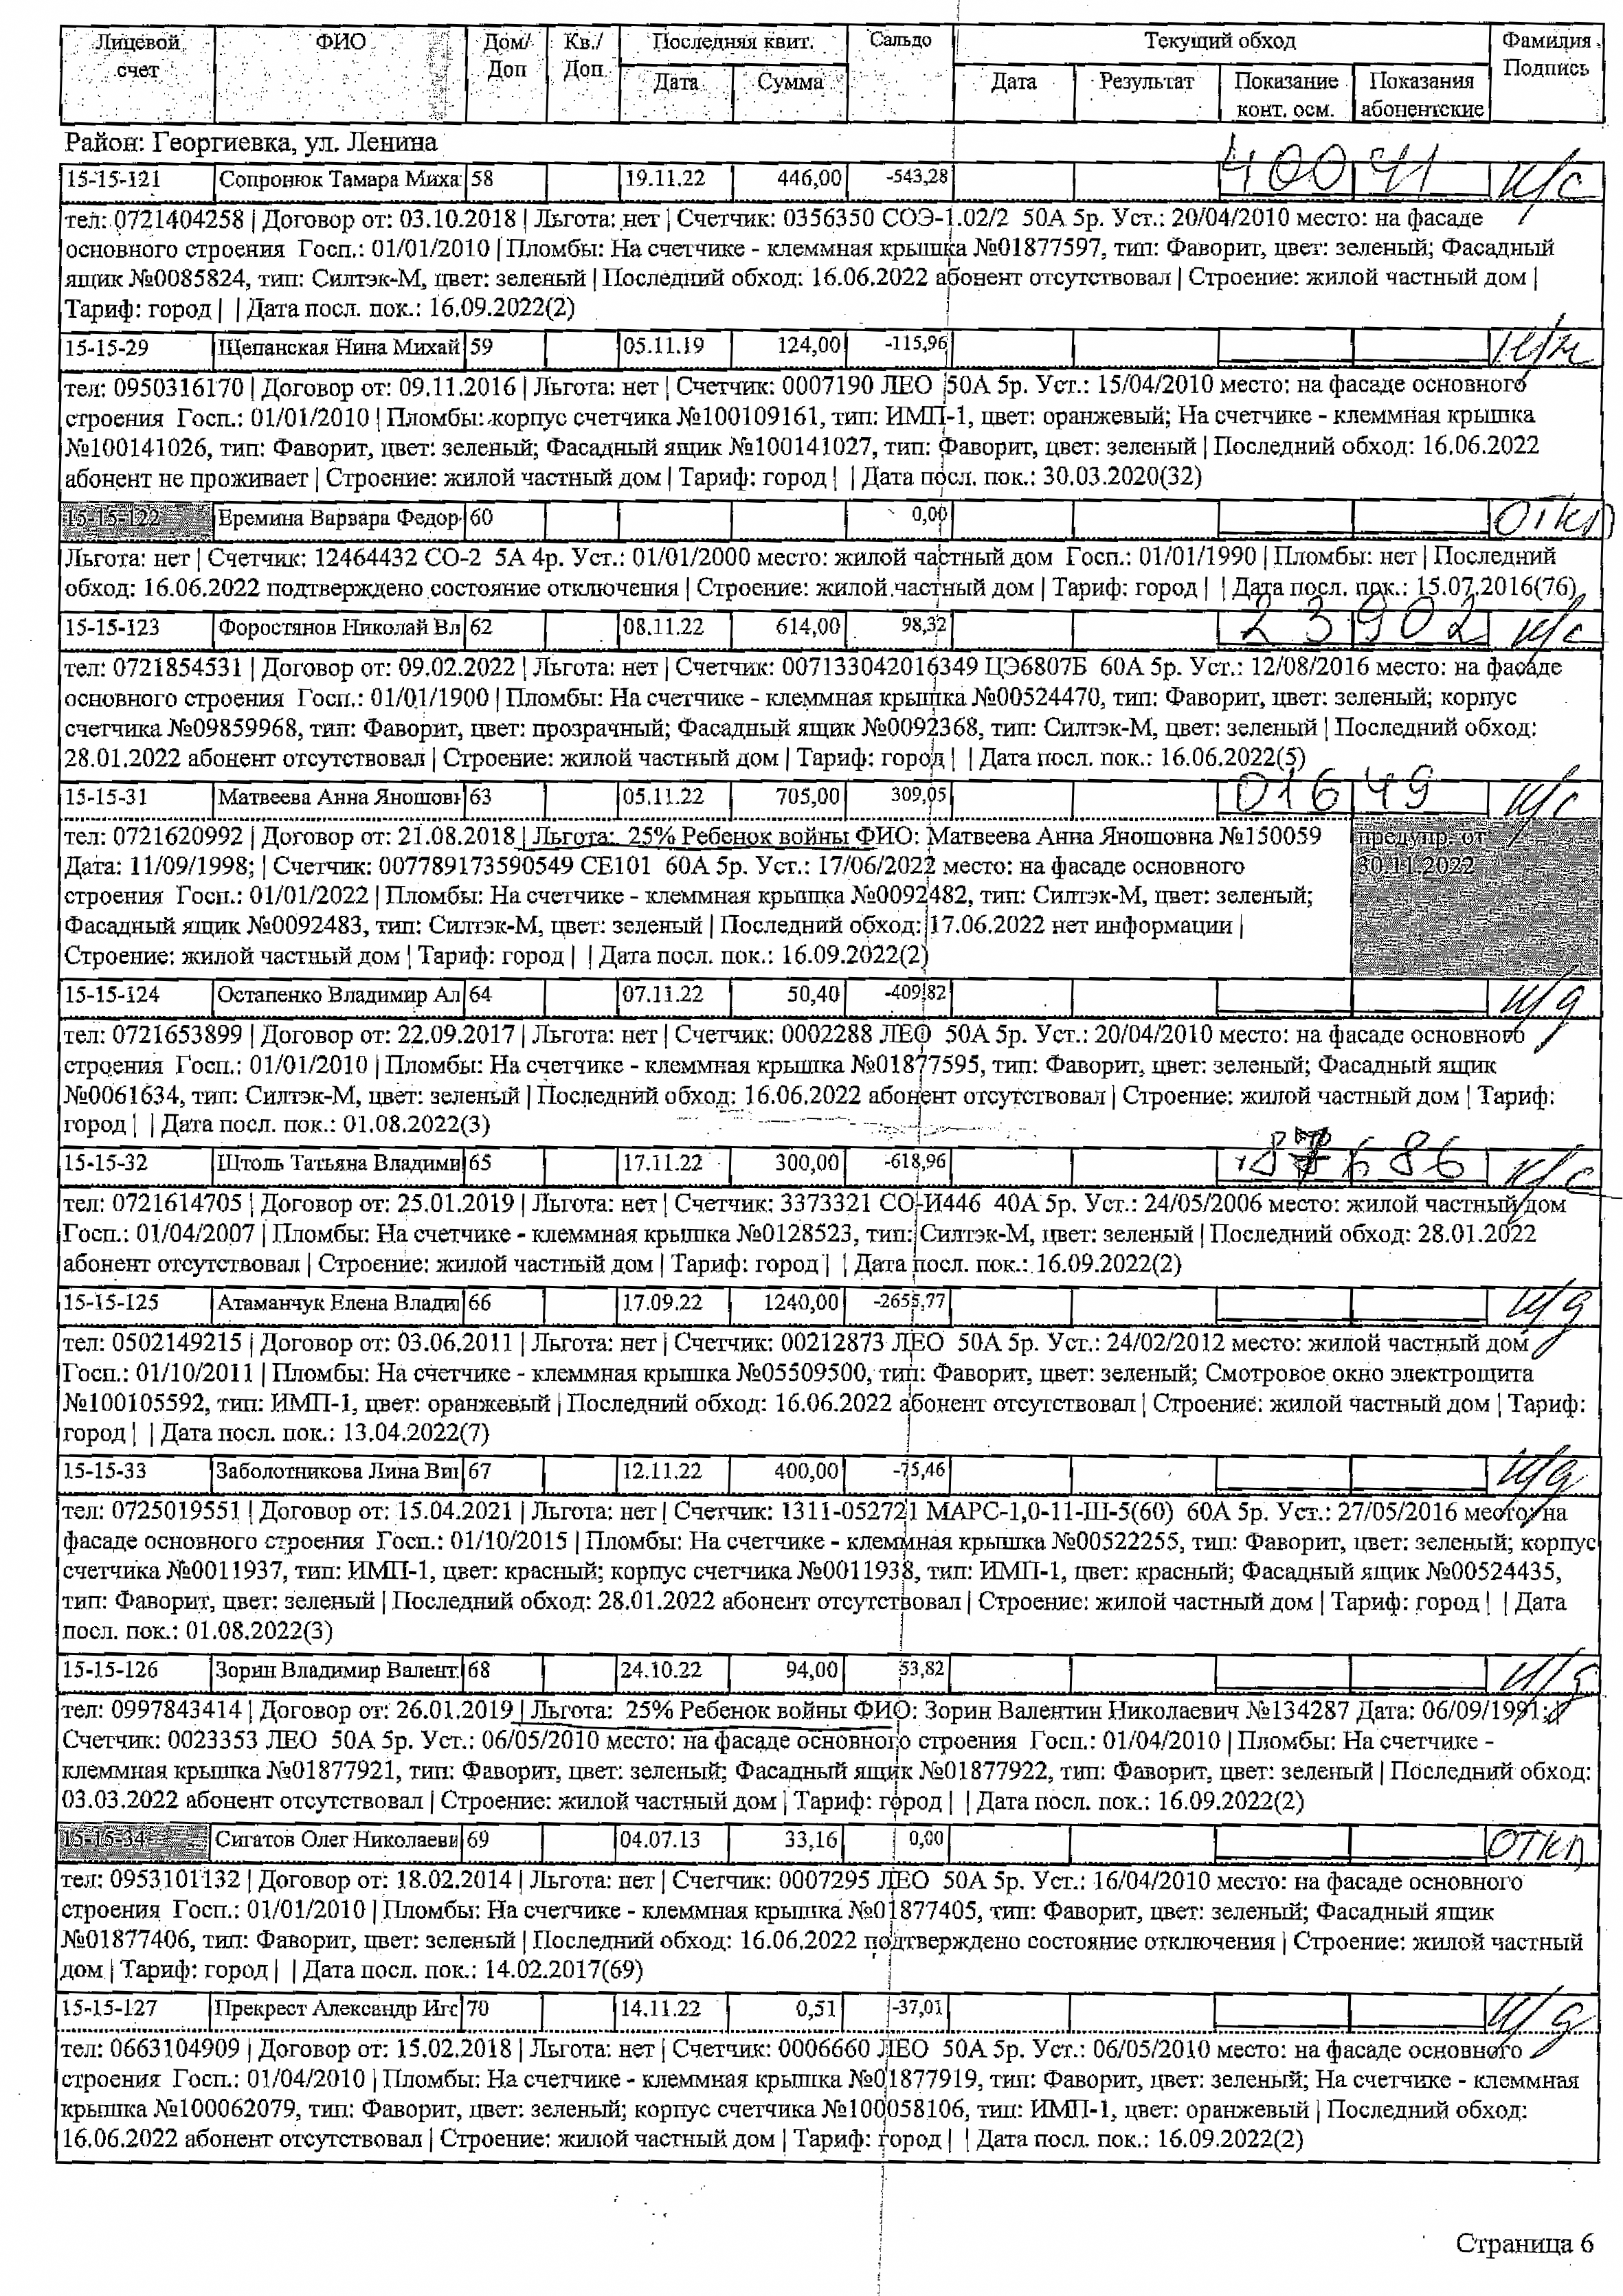 Лицевой счет ФИО Дом/ Доп Кв./ Доп Последняя квит. Сальдо Текущий обход Фамилия Подпись
Дата Сумма Дата Результат Показание конт. осм. Показания абонентские
Район: Георгиевка, ул. Ленина
15-15-121 Сопронюк Тамара Миха 58 19.11.22 446,00 -543,28 40041 н/с
тел: 0721404258 | Договор от: 03.10.2018 | Льгота: нет | Счетчик: 0356350 СОЭ-1.02/2 50А 5р. Уст.: 20/04/2010 место: на фасаде
основного строения Госп.: 01/01/2010 | Пломбы: На счетчике - клеммная крышка №01877597, тип: Фаворит, цвет: зеленый; Фасадный
ящик №0085824, тип: Силтэк-М, цвет: зеленый | Последний обход: 16.06.2022 абонент отсутствовал | Строение: жилой частный дом |
Тариф: город | | Дата посл. пок.: 16.09.2022(2)
15-15-29 Щепанская Нина Михай 59 05.11.19 124,00 -115,96
тел: 0950316170 | Договор от: 09.11.2016 | Льгота: нет | Счетчик: 0007190 ЛЕО 50А 5р. Уст.: 15/04/2010 место: на фасаде основного
строения Госп.: 01/01/2010 | Пломбы: корпус счетчика №100109161, тип: ИМП-1, цвет: оранжевый; На счетчике - клеммная крышка
№100141026, тип: Фаворит, цвет: зеленый; Фасадный ящик №100141027, тип: Фаворит, цвет: зеленый | Последний обход: 16.06.2022
абонент не проживает | Строение: жилой частный дом | Тариф: город | | Дата посл. пок.: 30.03.2020(32)
15-15-122 Еремина Варвара Федор 60 0,00 откл
Льгота: нет | Счетчик: 12464432 СО-2 5А 4р. Уст.: 01/01/2000 место: жилой частный дом Госп.: 01/01/1990 | Пломбы: нет | Последний
обход: 16.06.2022 подтверждено состояние отключения | Строение: жилой частный дом | Тариф: город | | Дата посл. пок.: 15.07.2016(76)
15-15-123 Форостянов Николай Вл 62 08.11.22 614,00 98,32 23902 н/с
тел: 0721854531 | Договор от: 09.02.2022 | Льгота: нет | Счетчик: 007133042016349 ЦЭ6807Б 60А 5р. Уст.: 12/08/2016 место: на фасаде
основного строения Госп.: 01/01/1900 | Пломбы: На счетчике - клеммная крышка №00524470, тип: Фаворит, цвет: зеленый; корпус
счетчика №09859968, тип: Фаворит, цвет: прозрачный; Фасадный ящик №0092368, тип: Силтэк-М, цвет: зеленый | Последний обход:
28.01.2022 абонент отсутствовал | Строение: жилой частный дом | Тариф: город | | Дата посл. пок.: 16.06.2022(5)
15-15-31 Матвеева Анна Яношовн 63 05.11.22 705,00 309,05 01649 н/с
тел: 0721620992 | Договор от: 21.08.2018 | Льгота: 25% Ребенок войны ФИО: Матвеева Анна Яношовна №150059 предупр. от
Дата: 11/09/1998; | Счетчик: 007789173590549 СЕ101 60А 5р. Уст.: 17/06/2022 место: на фасаде основного 30.11.2022
строения Госп.: 01/01/2022 | Пломбы: На счетчике - клеммная крышка №0092482, тип: Силтэк-М, цвет: зеленый;
Фасадный ящик №0092483, тип: Силтэк-М, цвет: зеленый | Последний обход: 17.06.2022 нет информации |
Строение: жилой частный дом | Тариф: город | | Дата посл. пок.: 16.09.2022(2)
15-15-124 Остапенко Владимир Ал 64 07.11.22 50,40 -409,82 н/д
тел: 0721653899 | Договор от: 22.09.2017 | Льгота: нет | Счетчик: 0002288 ЛЕО 50А 5р. Уст.: 20/04/2010 место: на фасаде основного
строения Госп.: 01/01/2010 | Пломбы: На счетчике - клеммная крышка №01877595, тип: Фаворит, цвет: зеленый; Фасадный ящик
№0061634, тип: Силтэк-М, цвет: зеленый | Последний обход: 16.06.2022 абонент отсутствовал | Строение: жилой частный дом | Тариф:
город | | Дата посл. пок.: 01.08.2022(3)
15-15-32 Штоль Татьяна Владими 65 17.11.22 300,00 -618,96 н/с
тел: 0721614705 | Договор от: 25.01.2019 | Льгота: нет | Счетчик: 3373321 СО-И446 40А 5р. Уст.: 24/05/2006 место: жилой частный дом
Госп.: 01/04/2007 | Пломбы: На счетчике - клеммная крышка №0128523, тип: Силтэк-М, цвет: зеленый | Последний обход: 28.01.2022
абонент отсутствовал | Строение: жилой частный дом | Тариф: город | | Дата посл. пок.: 16.09.2022(2)
15-15-125 Атаманчук Елена Влади 66 17.09.22 1240,00 -2655,77 н/д
тел: 0502149215 | Договор от: 03.06.2011 | Льгота: нет | Счетчик: 00212873 ЛЕО 50А 5р. Уст.: 24/02/2012 место: жилой частный дом
Госп.: 01/10/2011 | Пломбы: На счетчике - клеммная крышка №05509500, тип: Фаворит, цвет: зеленый; Смотровое окно электрощита
№100105592, тип: ИМП-1, цвет: оранжевый | Последний обход: 16.06.2022 абонент отсутствовал | Строение: жилой частный дом | Тариф:
город | | Дата посл. пок.: 13.04.2022(7)
15-15-33 Заболотникова Лина Ви 67 12.11.22 400,00 -75,46 н/д
тел: 0725019551 | Договор от: 15.04.2021 | Льгота: нет | Счетчик: 1311-052721 МАРС-1,0-11-Ш-5(60) 60А 5р. Уст.: 27/05/2016 место: на
фасаде основного строения Госп.: 01/10/2015 | Пломбы: На счетчике - клеммная крышка №00522255, тип: Фаворит, цвет: зеленый; корпус
счетчика №0011937, тип: ИМП-1, цвет: красный; корпус счетчика №0011938, тип: ИМП-1, цвет: красный; Фасадный ящик №00524435,
тип: Фаворит, цвет: зеленый | Последний обход: 28.01.2022 абонент отсутствовал | Строение: жилой частный дом | Тариф: город | | Дата
посл. пок.: 01.08.2022(3)
15-15-126 Зорин Владимир Валент 68 24.10.22 94,00 53,82 н/д
тел: 0997843414 | Договор от: 26.01.2019 | Льгота: 25% Ребенок войны ФИО: Зорин Валентин Николаевич №134287 Дата: 06/09/1991; |
Счетчик: 0023353 ЛЕО 50А 5р. Уст.: 06/05/2010 место: на фасаде основного строения Госп.: 01/04/2010 | Пломбы: На счетчике -
клеммная крышка №01877921, тип: Фаворит, цвет: зеленый; Фасадный ящик №01877922, тип: Фаворит, цвет: зеленый | Последний обход:
03.03.2022 абонент отсутствовал | Строение: жилой частный дом | Тариф: город | | Дата посл. пок.: 16.09.2022(2)
15-15-34 Сигатов Олег Николаеви 69 04.07.13 33,16 0,00 откл
тел: 0953101132 | Договор от: 18.02.2014 | Льгота: нет | Счетчик: 0007295 ЛЕО 50А 5р. Уст.: 16/04/2010 место: на фасаде основного
строения Госп.: 01/01/2010 | Пломбы: На счетчике - клеммная крышка №01877405, тип: Фаворит, цвет: зеленый; Фасадный ящик
№01877406, тип: Фаворит, цвет: зеленый | Последний обход: 16.06.2022 подтверждено состояние отключения | Строение: жилой частный
дом | Тариф: город | | Дата посл. пок.: 14.02.2017(69)
15-15-127 Прекрест Александр Иго 70 14.11.22 0,51 -37,01 н/д
тел: 0663104909 | Договор от: 15.02.2018 | Льгота: нет | Счетчик: 0006660 ЛЕО 50А 5р. Уст.: 06/05/2010 место: на фасаде основного
строения Госп.: 01/04/2010 | Пломбы: На счетчике - клеммная крышка №01877919, тип: Фаворит, цвет: зеленый; На счетчике - клеммная
крышка №100062079, тип: Фаворит, цвет: зеленый; корпус счетчика №100058106, тип: ИМП-1, цвет: оранжевый | Последний обход:
16.06.2022 абонент отсутствовал | Строение: жилой частный дом | Тариф: город | | Дата посл. пок.: 16.09.2022(2)
Страница 6